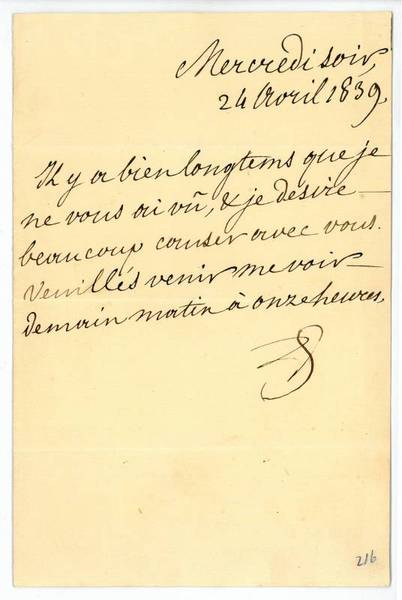 Mercredi soir,
24 Avril 1839.
Il y a bien longtems que je
ne vous ai vû, & je désire
beaucoup causer avec vous.
Veuillés venir me voir
demain matin à onze heures,
216